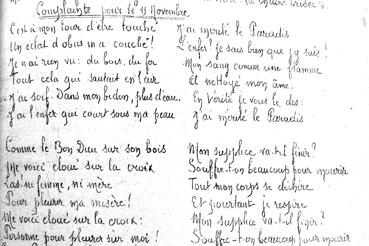 Complainte pour le 11 Novembre.
C'est à mon tour d'être touché
Un éclat d'obus m'a couché !
Je n'ai rien vu : du bois, du fer
Tout cela qui sautait en l'air
J'ai soif : Dans mon bidon, plus d'eau.
J'ai l'enfer qui court sous ma peau
Comme le Bon Dieu sur son bois
Me voici cloué sur la croix
Pas de femme, ni mère
Pour pleurer ma misère !
Me voici cloué sur la croix :
Personne pour pleurer sur moi !
J'ai mérité le Paradis
L'enfer ! je sais bien que j'y suis !
Mon sang comme une flamme
Et nettoyé mon âme.
En Vérité je vous le dis :
J'ai mérité le Paradis
Mon supplice va-t-il finir ?
Souffre-t-on beaucoup pour mourir
Tout mon corps se déchire
Et pourtant je respire
Mon supplice va-t-il finir ?
Souffre-t-on beaucoup pour mourir